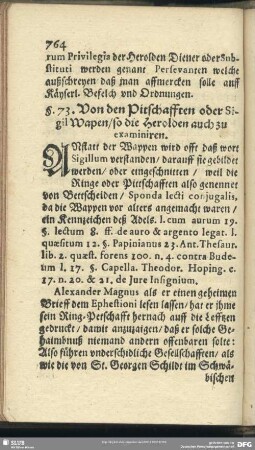 764
rum Privilegia der Herolden Diener oder Sub-
stituti werden genant Persevanten welche
außschreyen daß man auffmercken solle auff
Käyserl. Befelch vnd Ordnungen.
§. 73. Von den Pitschafften oder Si-
gil Wapen/so die Herolden auch zu
examiniren.
ANstatt der Wappen wird offt daß wort
Sigillum verstanden/ darauff sie gebildet
werden/ oder eingeschnitten/ weil die
Ringe oder Pittschafften also genennet
von Bettscheiden/ Sponda lecti conjugalis,
da die Wappen vor alters angemacht waren/
ein Kennzeichen deß Adels. l. cum aurum 19.
§. lectum 8. ff. de auro & argento legat. l.
quæsitum 12. §. Papinianus 23. Ant. Thesaur.
lib. 2. quæst. forens 100. n. 4. contra Budæ-
um l. 17. §. Capella. Theodor. Hoping. c.
17. n. 20. & 21. de Jure Insignium.
Alexander Magnus als er einen geheimen
Brieff dem Ephestioni lesen lassen/ hat er ihme
sein Ring-Petschafft hernach auff die Lefftzen
gedruckt/ damit anzuzaigen/ daß er solche Ge-
haimbnuß niemand andern offenbaren solte:
Also führen vnderschidliche Gesellschafften/ als
wie die von St. Georgen Schildt im Schwä-
bischen
SLUB
DFG